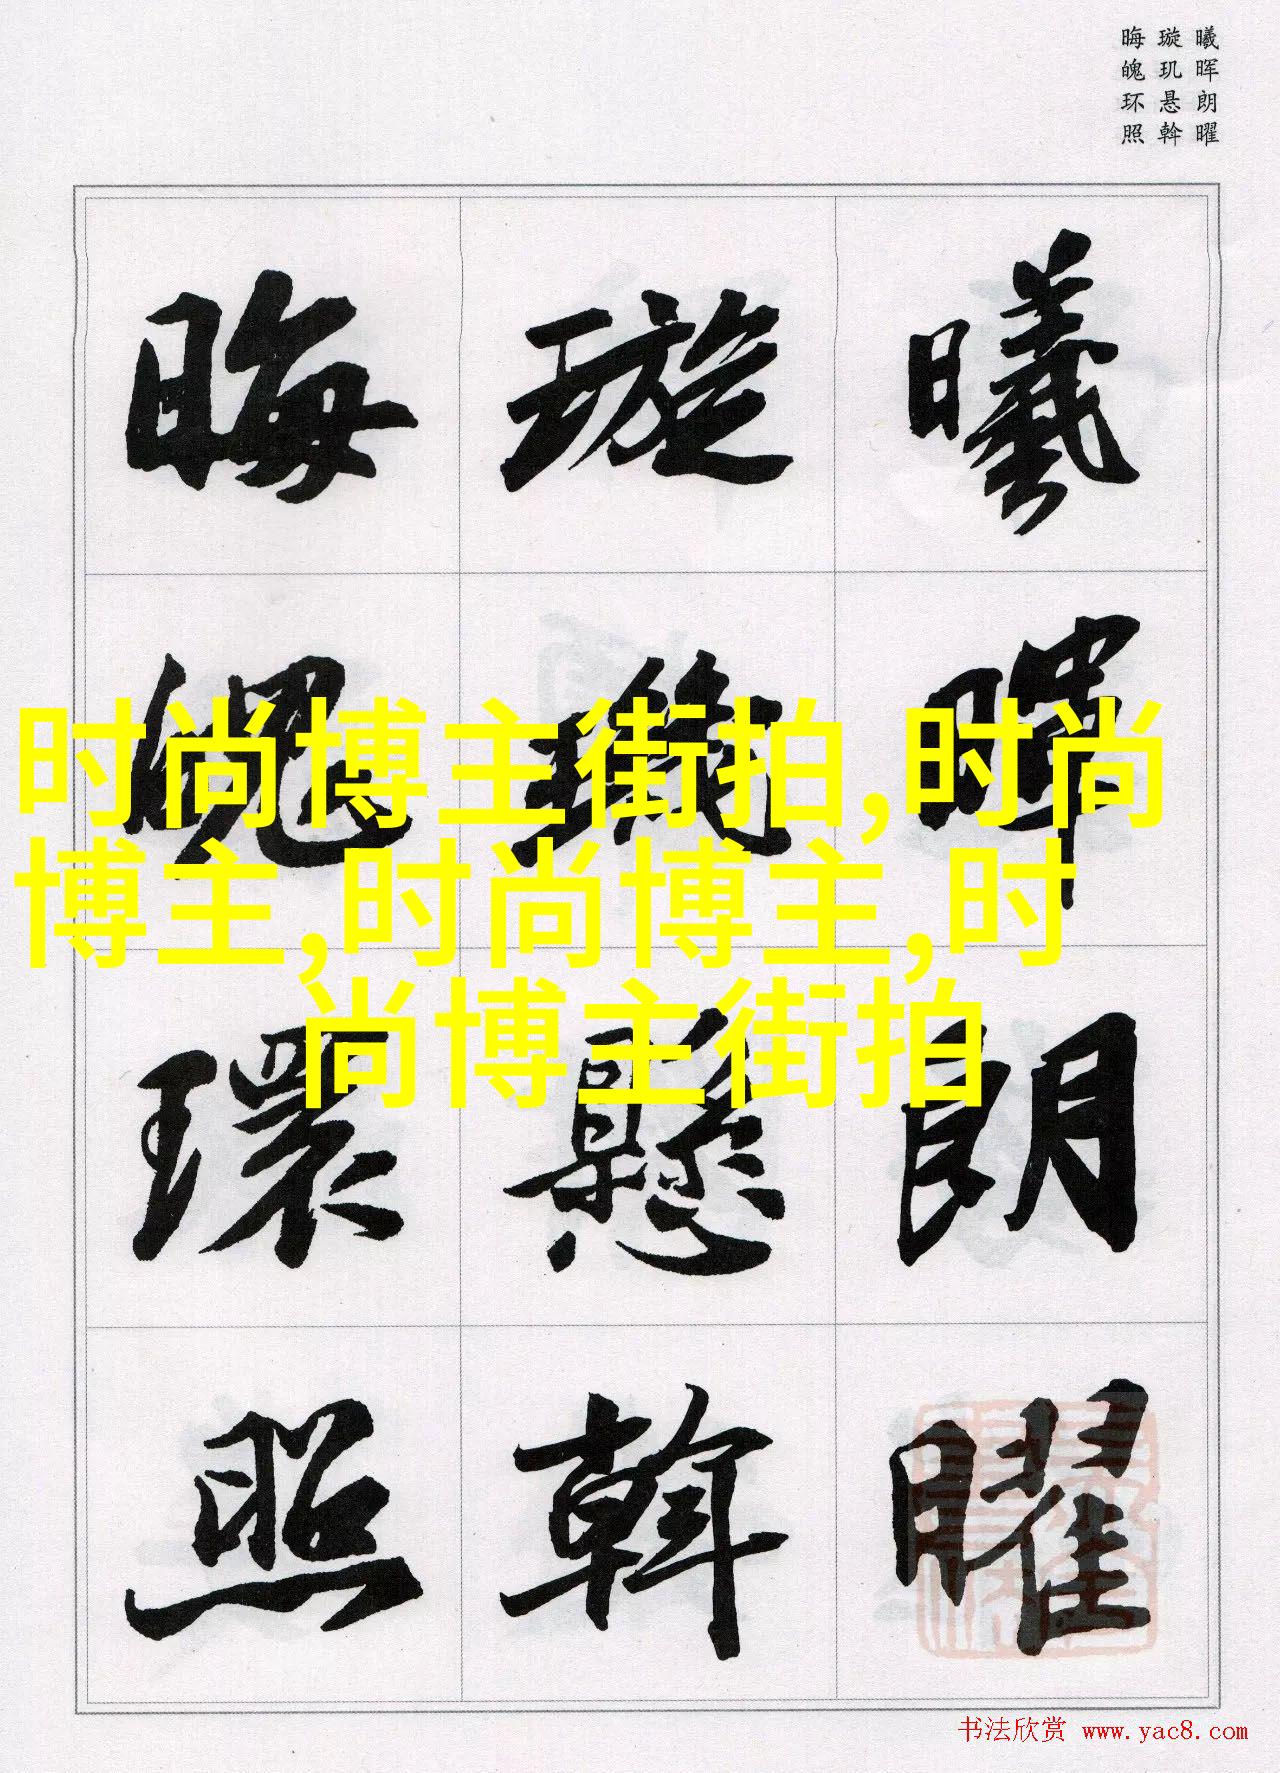 曦晖朗曜
璇玑悬斡
晦魄环照
曦暉朗曜
璇璣懸斡
晦魄環照
时尚博主街拍,时尚
博主,时尚博主,时
尚博主街拍
书法欣赏 www.yac8.com